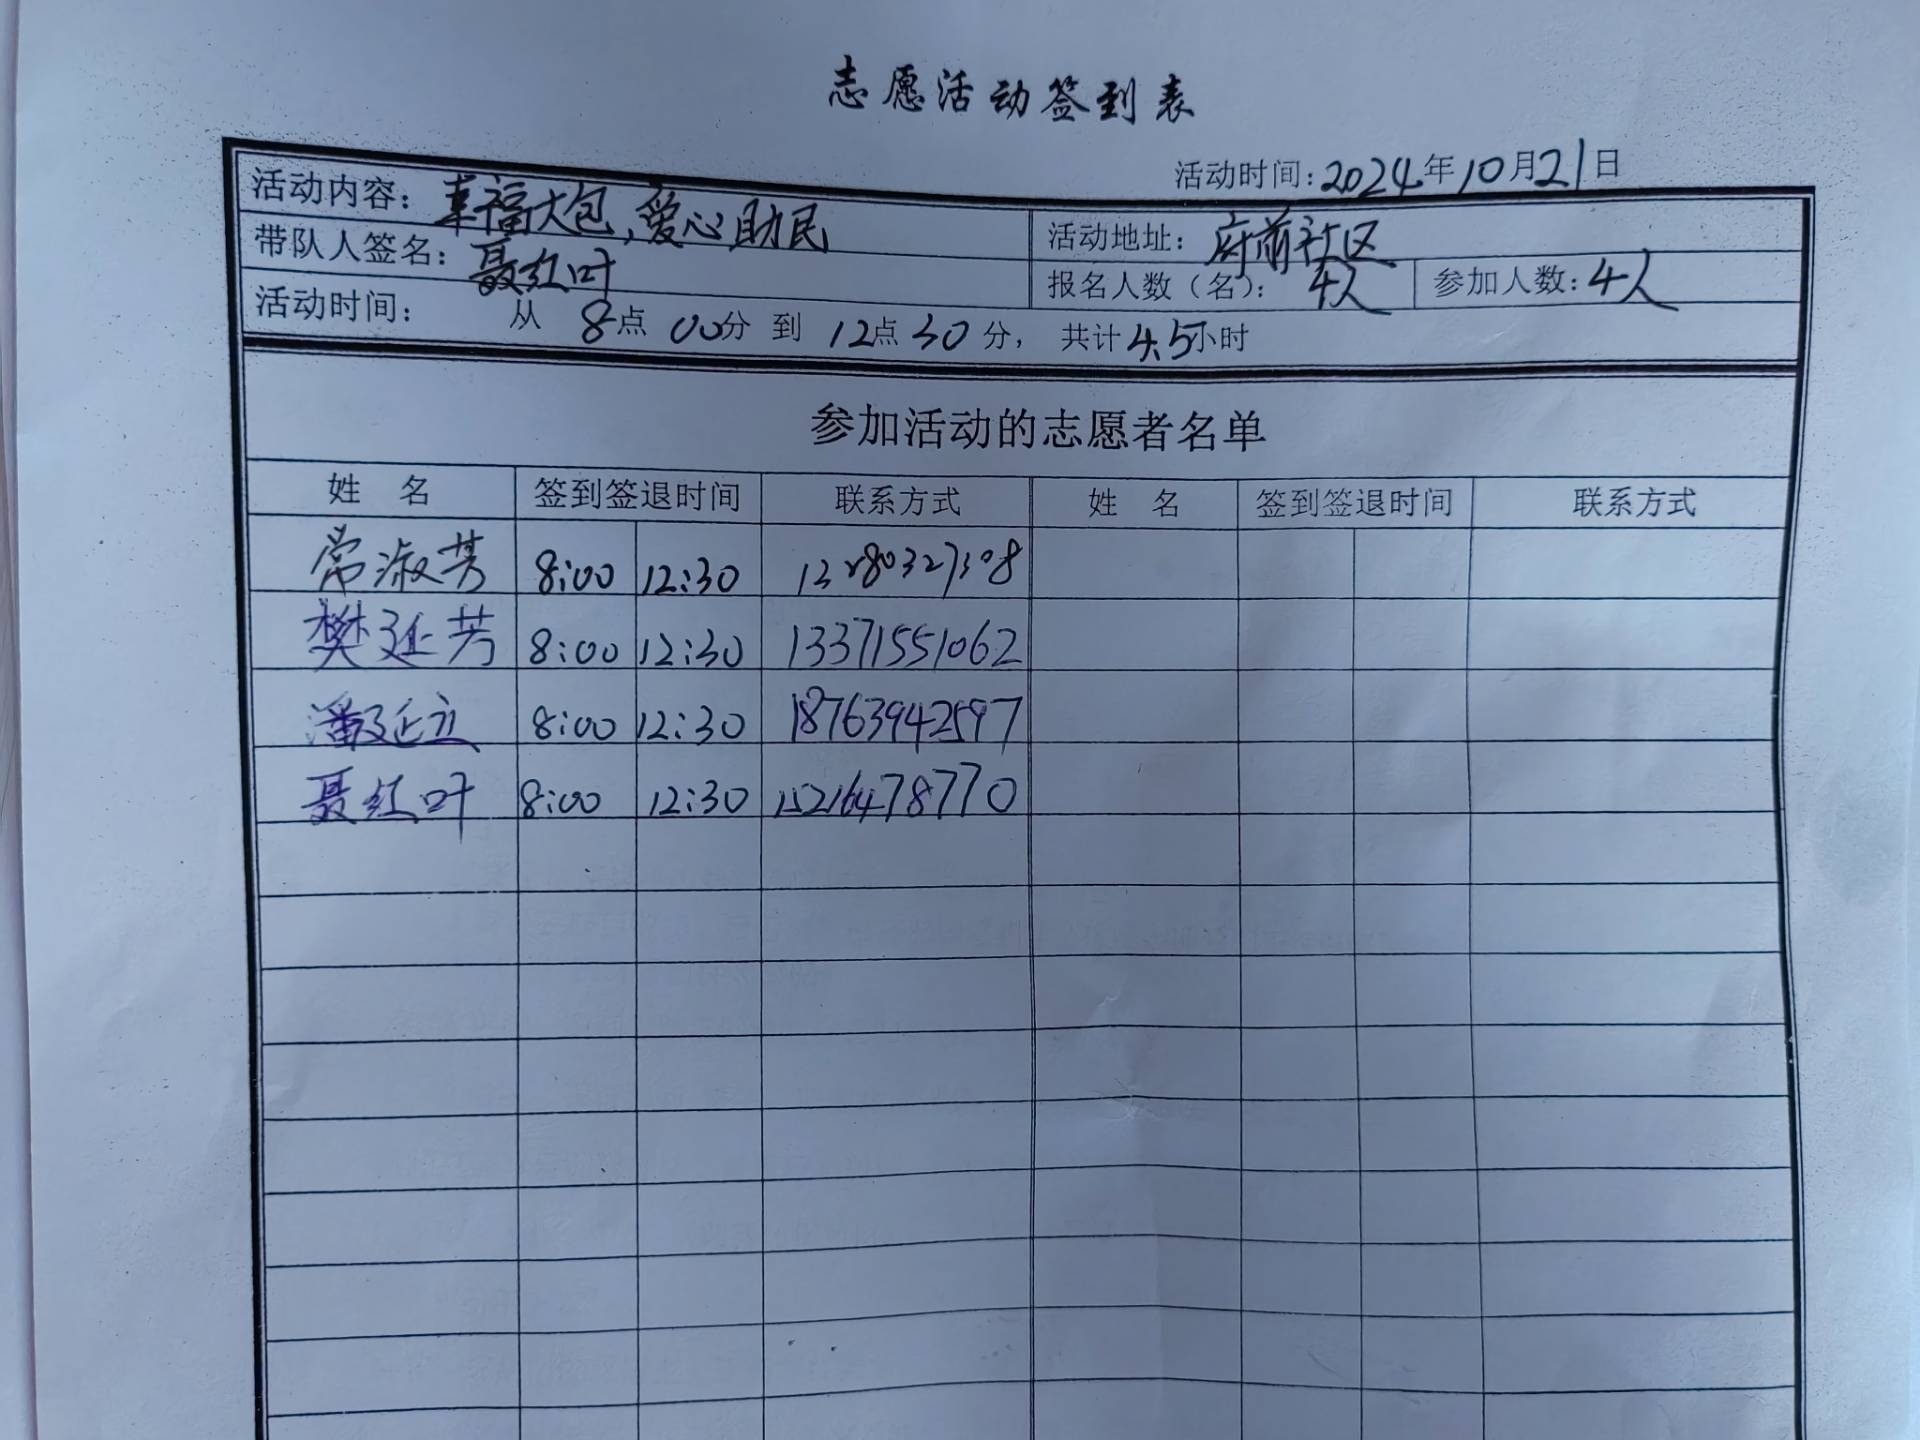 志愿活动签到表
活动时间:2024年10月21日
活动内容:幸福大包,爱心助民
活动地址:府前社区
带队人签名:聂红叶
报名人数(名):4人 参加人数:4人
活动时间: 从 8点 00分 到 12点 30分, 共计4.5小时
参加活动的志愿者名单
姓 名 签到签退时间 联系方式 姓 名 签到签退时间 联系方式
常淑芳 8:00 12:30 13280327308
樊延芳 8:00 12:30 13371551062
潘延立 8:00 12:30 18763942597
聂红叶 8:00 12:30 15216478770